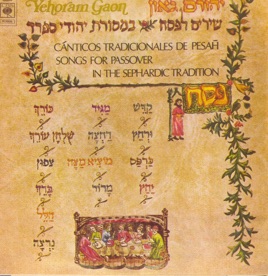 CBS
Yehoram Gaon
יהורם גאון
שירים לפסח במסורת יהודי ספרד
CÁNTICOS TRADICIONALES DE PESAH
SONGS FOR PASSOVER
IN THE SEPHARDIC TRADITION
פסח
קדש
ורחץ
כרפס
יחץ
מגיד
רחצה
מוציא מצה
מרור
כורך
שלחן עורך
צפון
ברך
הלל
נרצה